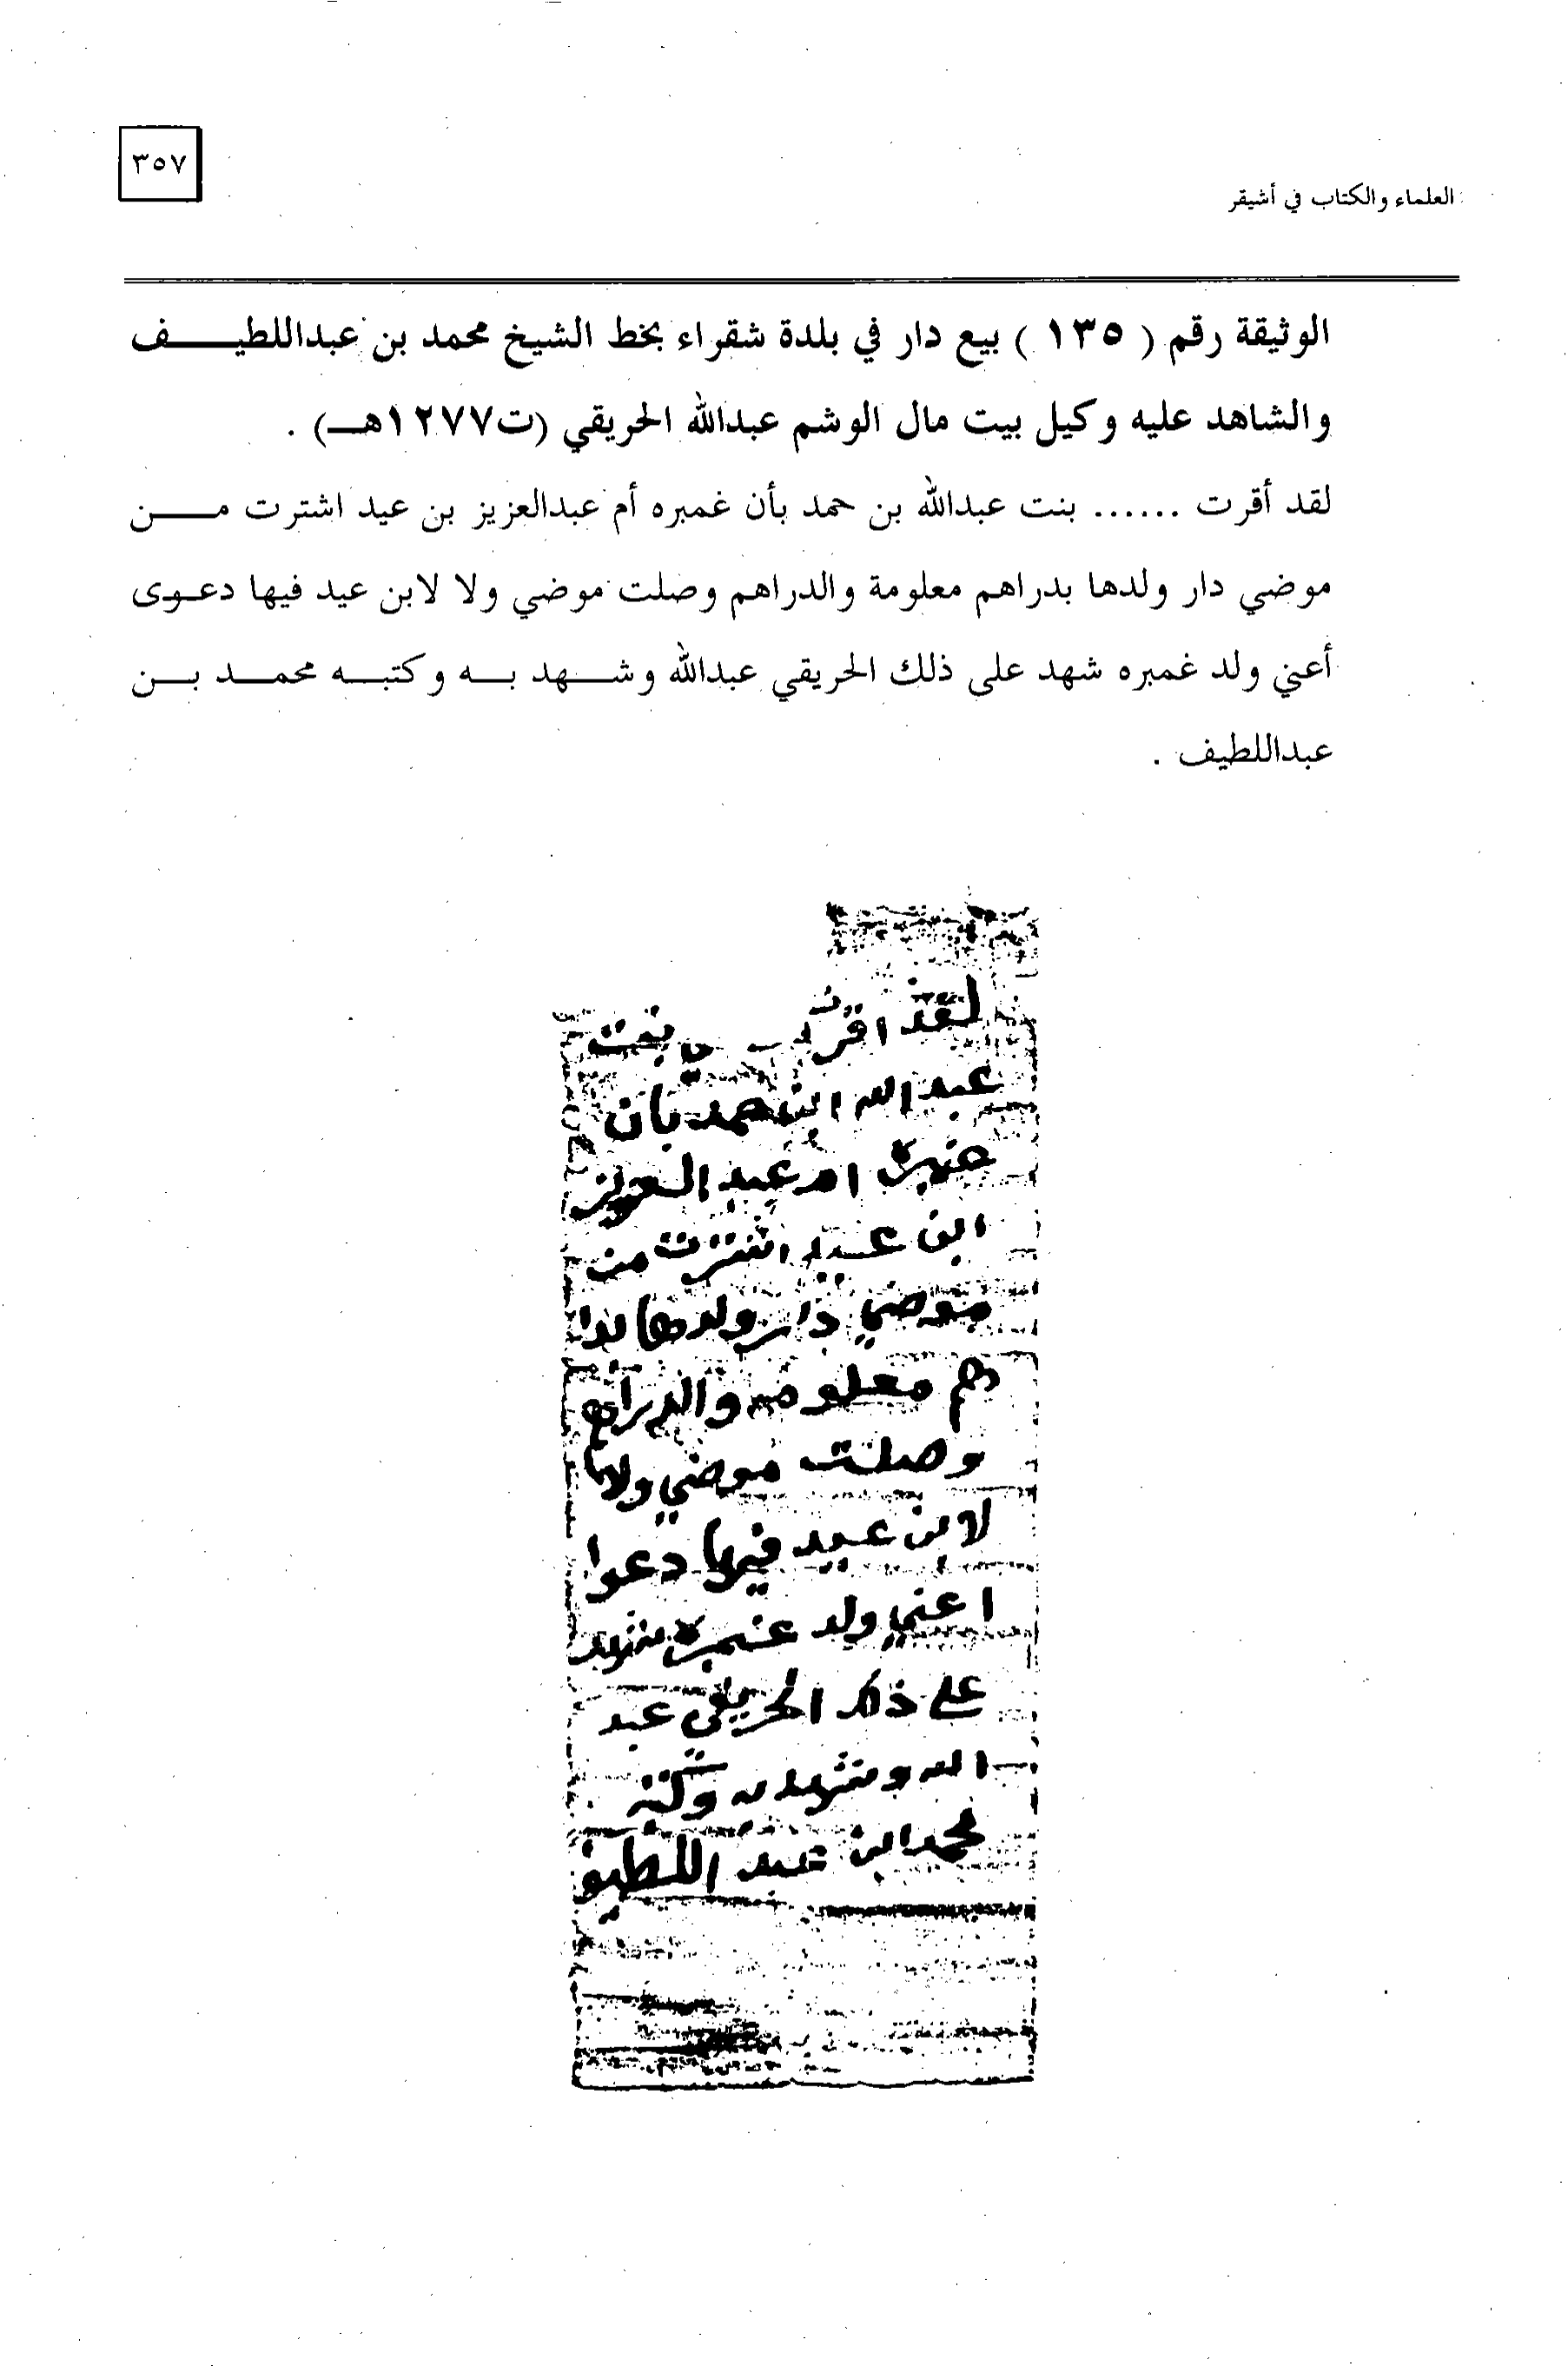 ٣٥٧
العلماء والكتاب في أشيقر
الوثيقة رقم ( ١٣٥ ) بيع دار في بلدة شقراء بخط الشيخ محمد بن عبداللطيف
والشاهد عليه وكيل بيت مال الوشم عبدالله الحريقي (ت١٢٧٧هـ) .
لقد أقرت ...... بنت عبدالله بن حمد بأن غمبره أم عبدالعزيز بن عيد اشترت من
موضي دار ولدها بدراهم معلومة والدراهم وصلت موضي ولا لابن عيد فيها دعوى
أعني ولد غمبره شهد على ذلك الحريقي عبدالله وشهد به وكتبه محمد بن
عبداللطيف .
لقد اقرت بنت
عبد الله ابن حمد بان
غمبره ام عبد العزيز
ابن عيد اشترت من
موضي دار ولدها بدرا
هم معلومه والدراهم
وصلت موضي ولا
لابن عيد فيها دعوا
اعني ولد غمبره شهد
على ذلك الحريقي عبد
الله وشهد به وكتبه
محمد ابن عبد اللطيف